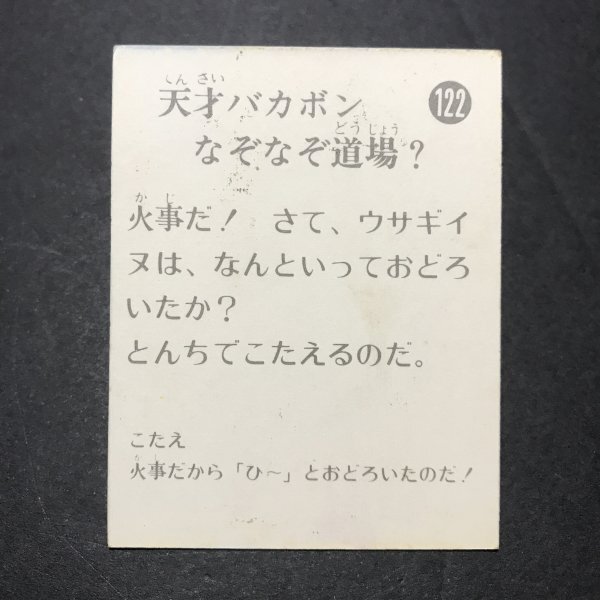 てんさい
天才バカボン
122
どうじょう
なぞなぞ道場？
かじ
火事だ！　さて、ウサギイ
ヌは、なんといっておどろ
いたか？
とんちでこたえるのだ。
こたえ
かじ
火事だから「ひ〜」とおどろいたのだ！